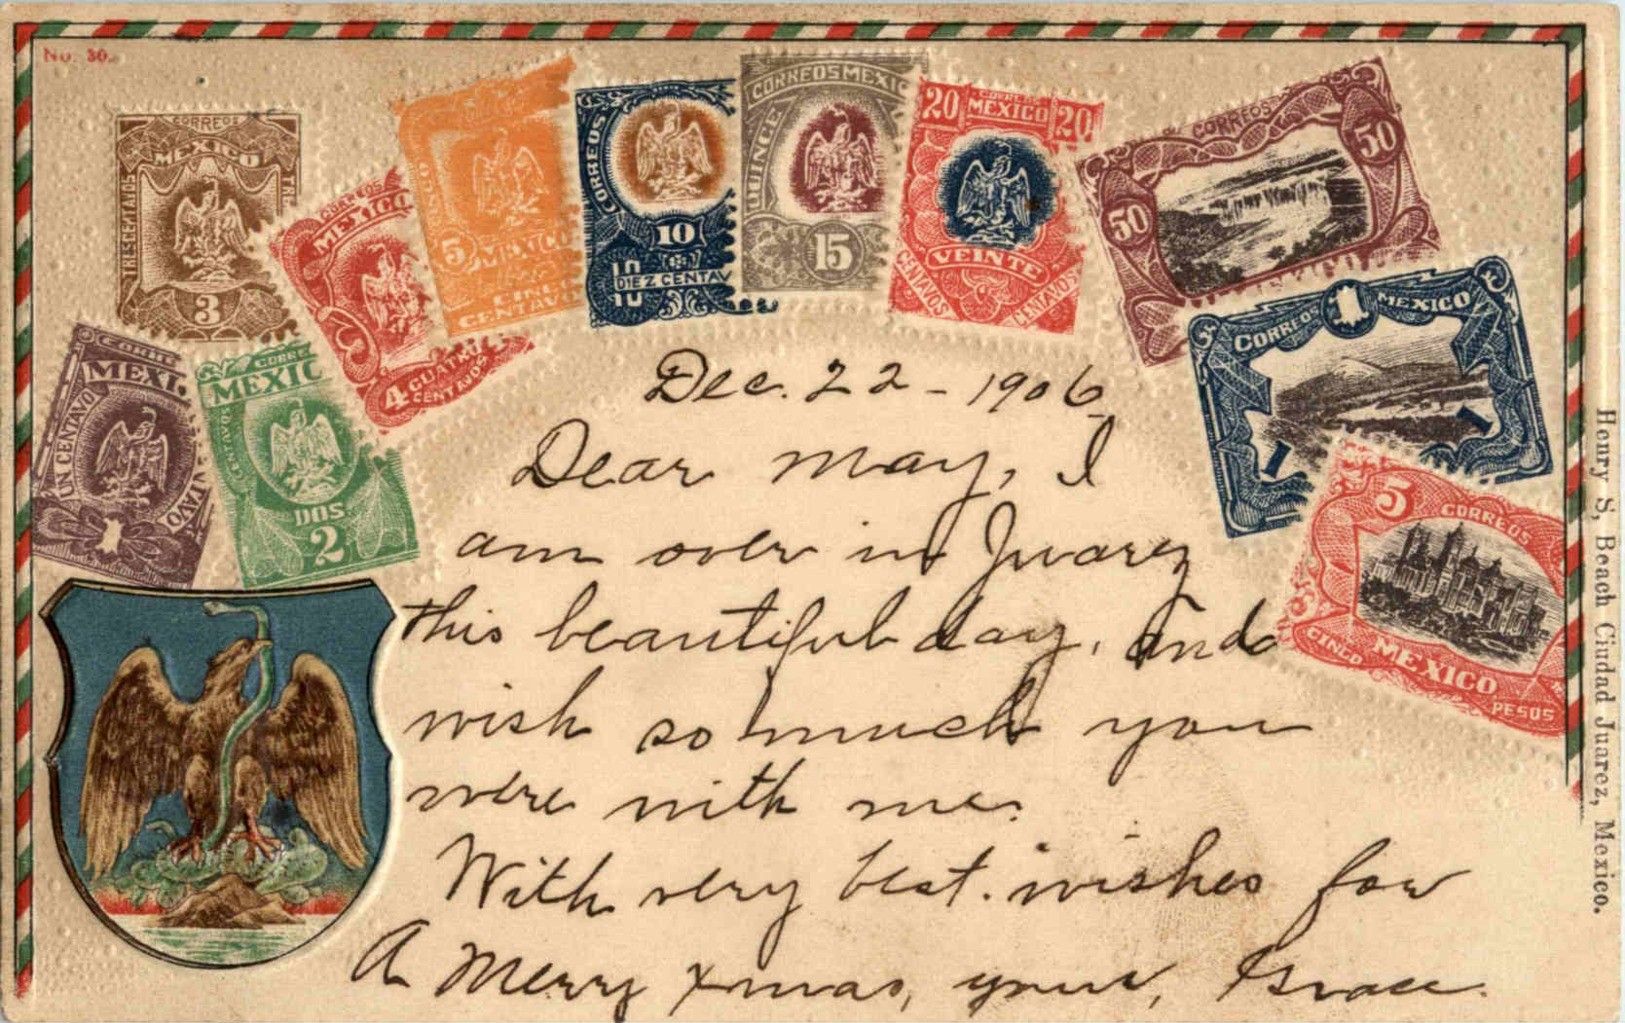 No. 30.
CORREOS
MEXICO
TRES CENTAVOS
3
MEXICO
4 CUATRO
CENTAVOS
5 MEXICO
CINCO
CENTAVOS
CORREOS
10
10
DIEZ CENTAV
CORREOS MEXIC
QUINCE
15
20 MEXICO 20
VEINTE
CENTAVOS CENTAVOS
CORREOS
50
50
CORREOS 1 MEXICO
1 1
5 CORREOS
CINCO MEXICO
PESOS
MEXI
UN CENTAVO
1
CORRE
MEXIC
CENTAVOS
DOS
2
Dec. 22 - 1906
Dear May, I
am over in Juarez
this beautiful day, and
wish so much you
were with me.
With very best wishes for
A Merry Xmas, yours, Grace.
Henry S, Beach Ciudad Juarez, Mexico.